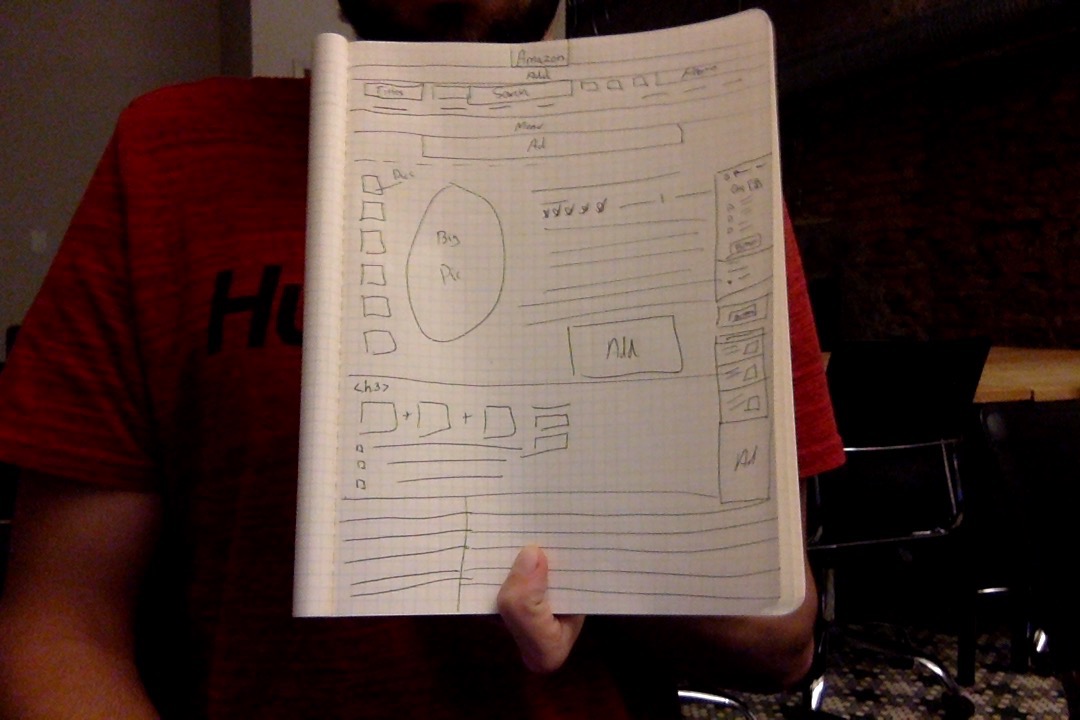 Amazon
Add
Search
Menu
Ad
Pics
Big
Pic
Add
<h3>
+ +
Ad
Hu